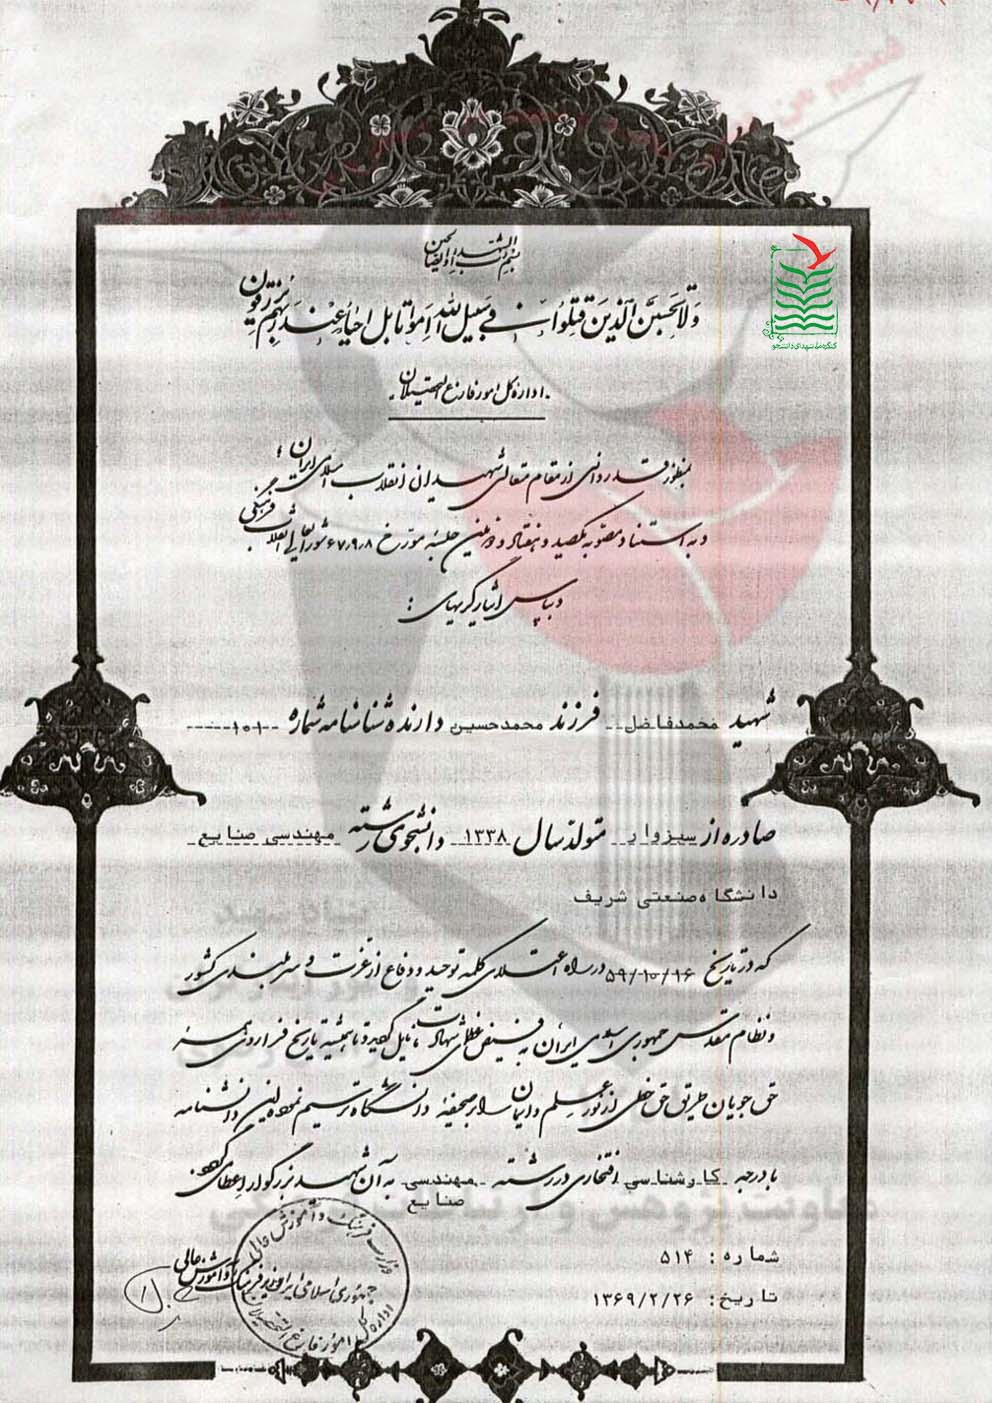 بسم رب الشهداء و الصالحین
وَلا تَحسَبَنَّ الَّذینَ قُتِلوا فی سَبیلِ اللهِ اَمواتا بَل اَحیاءٌ عِندَ رَبِّهِم یُرزَقون
کنگره ملی شهدای دانشجو
اداره کل امور فارغ التحصیلان
بمنظور قدردانی از مقام متعالی شهیدان انقلاب اسلامی ایران
و به استناد مصوبه یکصد و هفتاد و دومین جلسه مورخ ۶۷/۹/۸ شورایعالی انقلاب فرهنگی
و بپاس ایثارگریهای :
شهید محمدفاضل فرزند محمدحسین دارنده شناسنامه شماره ۱۰۱
صادره از سبزوار متولد سال ۱۳۳۸ دانشجوی رشته مهندسی صنایع
دانشگاه صنعتی شریف
که در تاریخ ۵۹/۱۰/۱۶ در راه اعتلای کلمه توحید و دفاع از عزت و سربلندی کشور
و نظام مقدس جمهوری اسلامی ایران به فیض عظمای شهادت نایل گردید و تا همیشه تاریخ فرا روی همه
حق جویان طریق حق خطی از نور علم و ایمان را بر صحیفه دانشگاه ترسیم نموده این دانشنامه
با درجه کارشناسی افتخاری در رشته مهندسی صنایع به آن شهید بزرگوار اعطا می گردد.
شماره : ۵۱۴
تاریخ: ۱۳۶۹/۲/۲۶
وزیر فرهنگ و آموزش عالی
وزارت فرهنگ و آموزش عالی
جمهوری اسلامی ایران
اداره کل امور فارغ التحصیلان
بنیاد شهید
معاونت پژوهش و ارتباطات فرهنگی